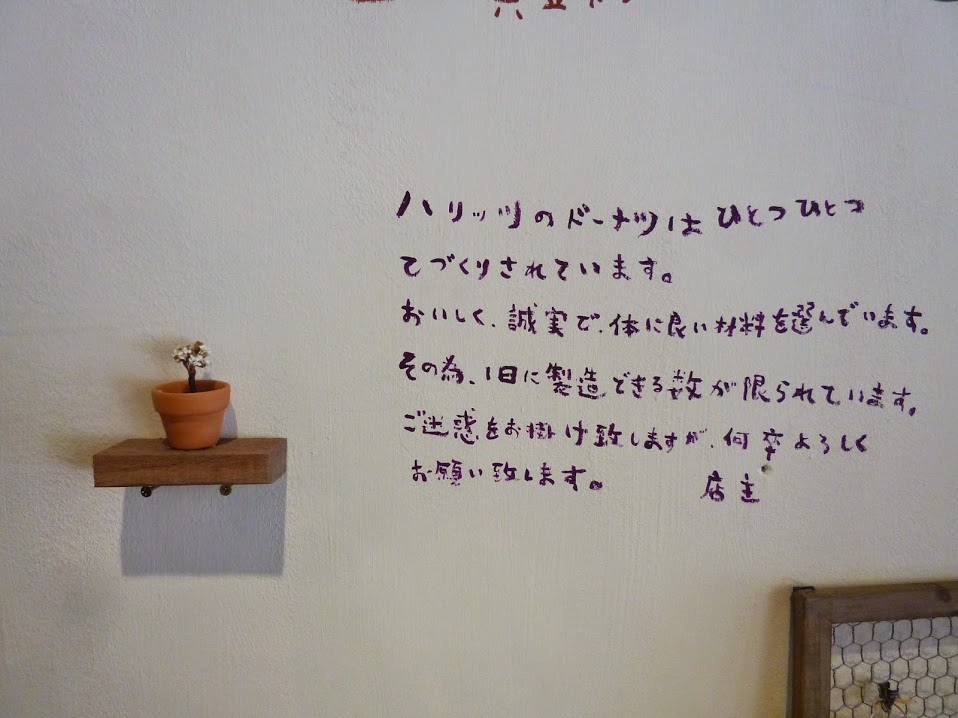 ハリッツのドーナツは ひとつひとつ
てづくりされています。
おいしく、誠実で、体に良い材料を選んでいます。
その為、1日に製造できる数が限られています。
ご迷惑をお掛け致しますが、何卒よろしく
お願い致します。 店主